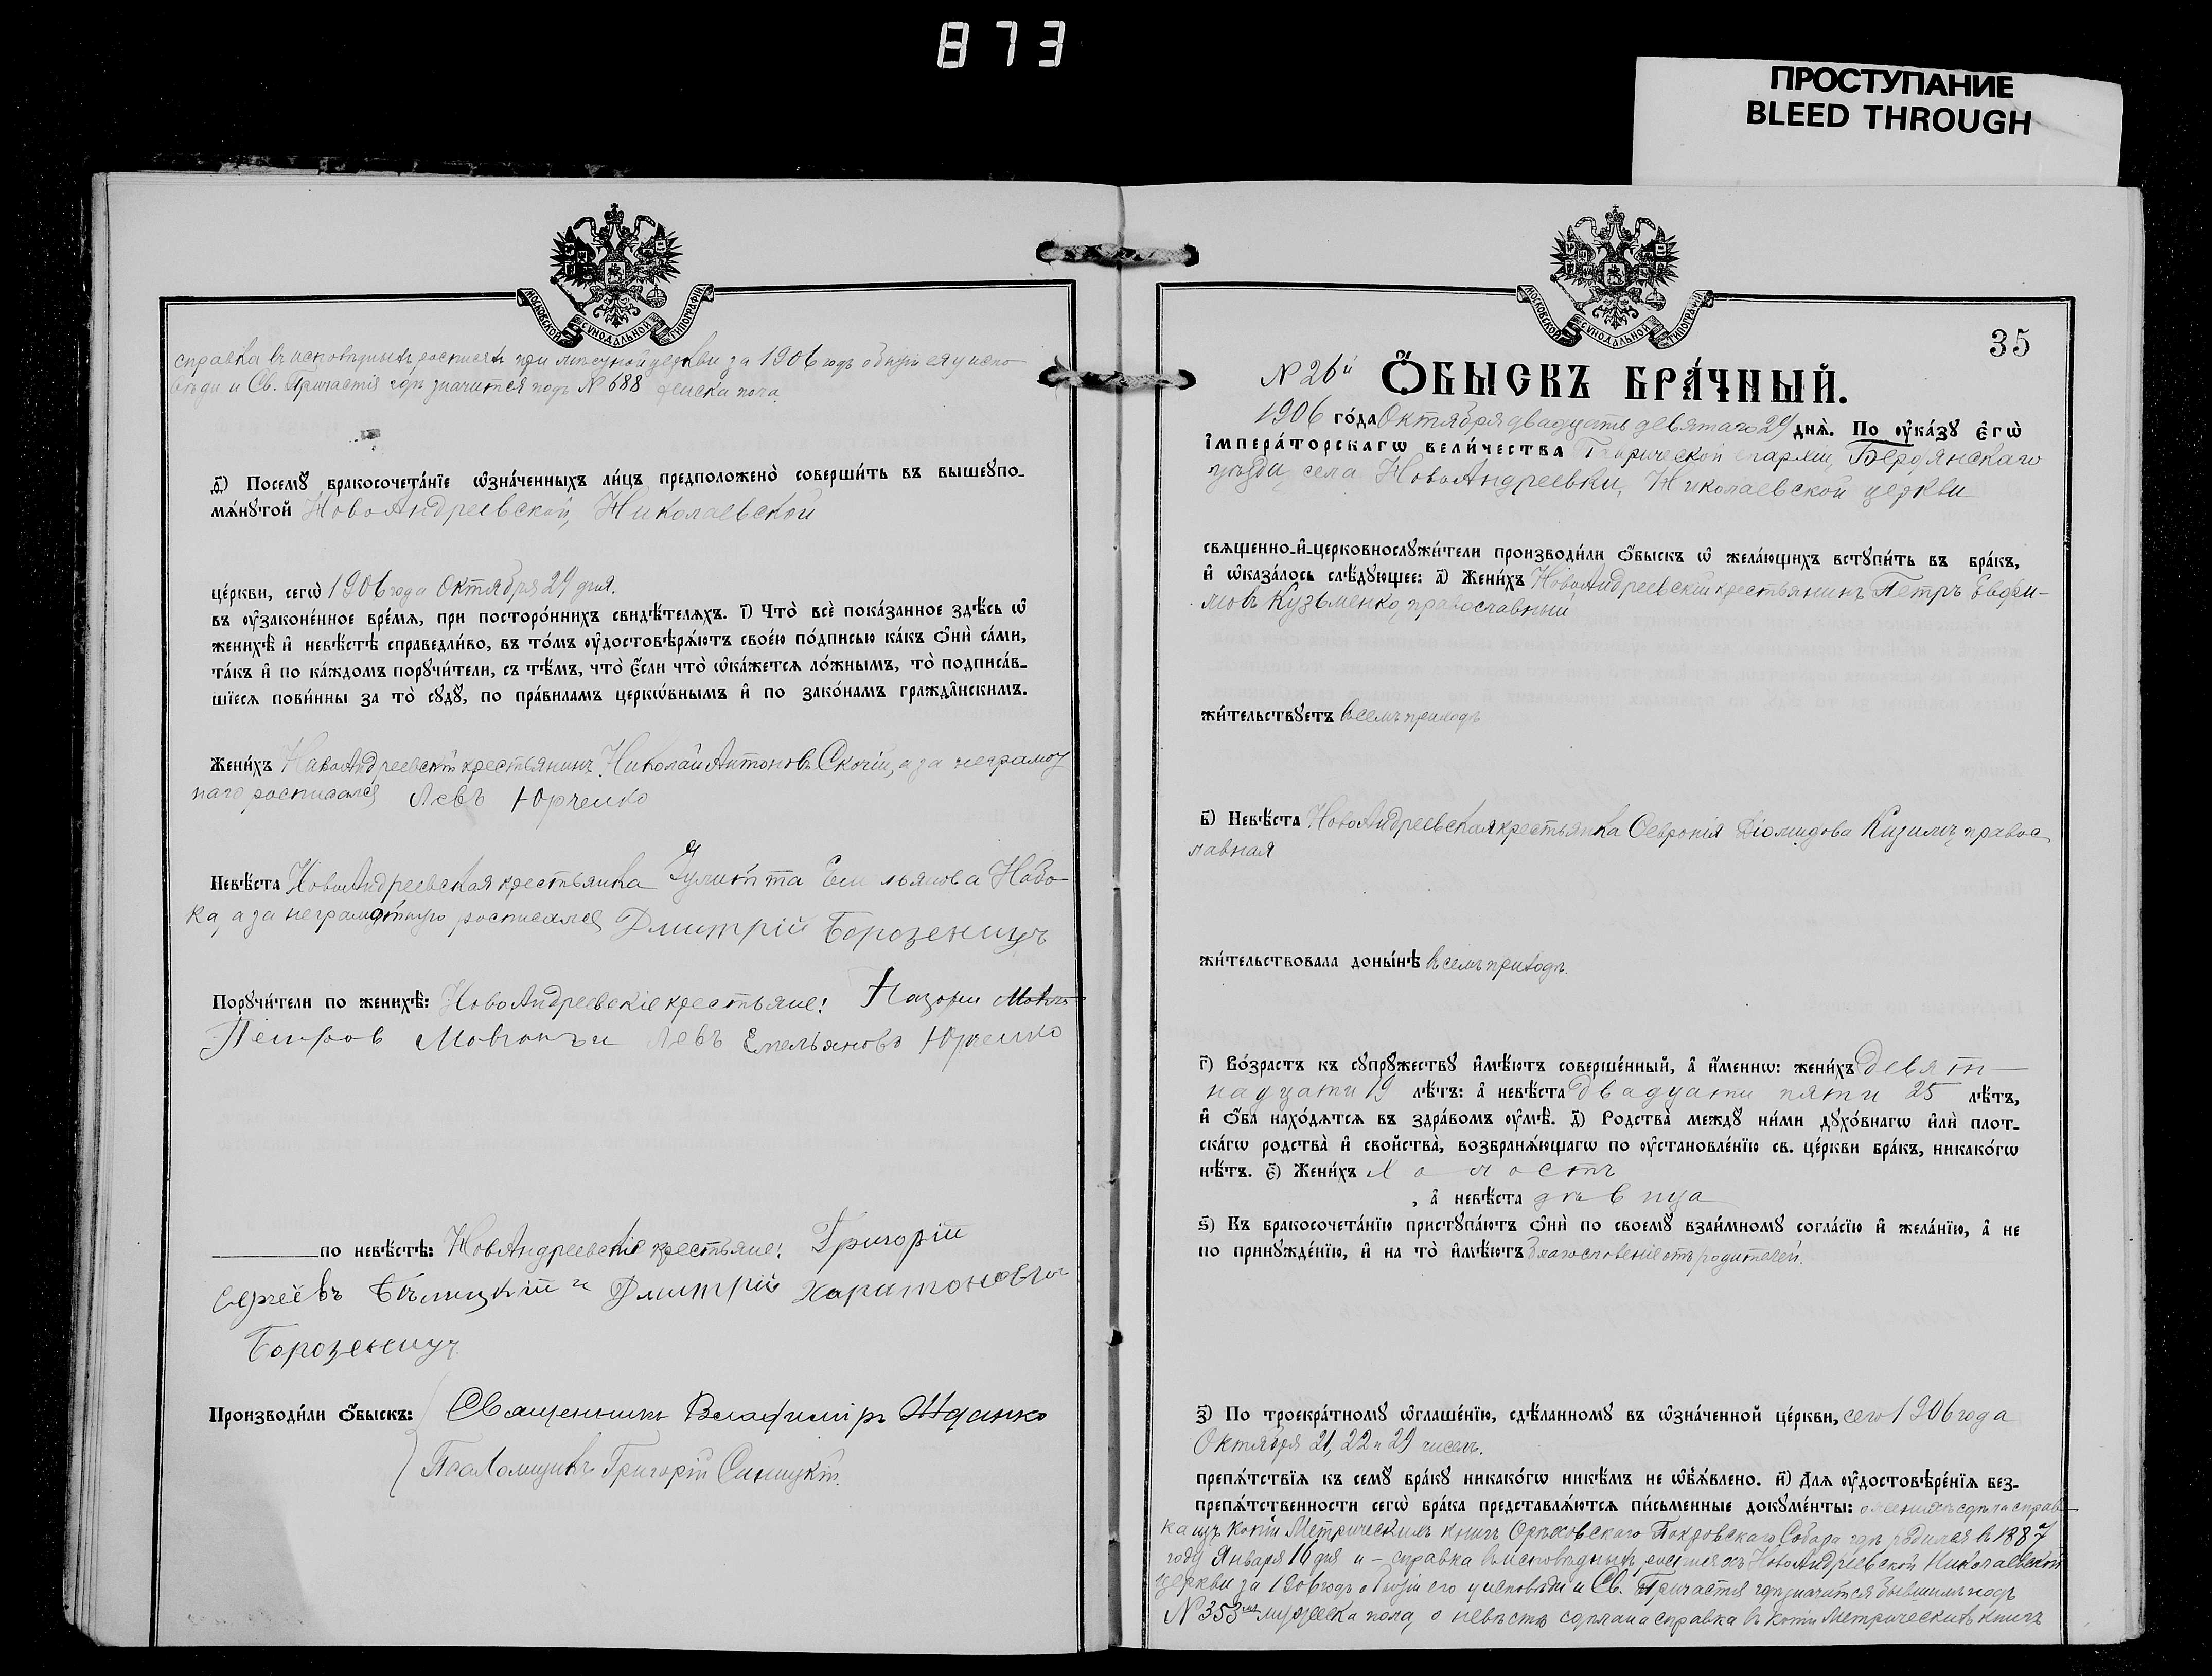 873
ПРОСТУПАНИЕ
BLEED THROUGH
МОСКОВСКОЙ СУНОДАЛЬНОЙ ТИПОГРАФІИ
справка въ исповѣдныхъ росписяхъ при мѣстной церкви за 1906 годъ о бытіи ея у испо-
вѣди и Св. Причастія гдѣ значится подъ № 688 женска пола
д҃і) Посемꙋ̀ бракосочета́нїе ѡ҆зна́ченныхъ ли́цъ предположено̀ соверши́ть въ вышеꙋпо-
мѧ́нꙋтой НовоАндреевской, Николаевской
це́ркви, сегѡ̀ 1906 года Октября 29 дня.
въ ᲂу҆законе́нное вре́мѧ, при посторо́ннихъ свидѣ́телѧхъ. і҃) Что̀ всѐ пока́занное здѣ́сь ѡ҆
женихѣ̀ и҆ невѣ́стѣ справедли́во, въ то́мъ ᲂу҆достовѣрѧ́ютъ свое́ю по́дписью ка́къ ѻ҆нѝ са́ми,
та́къ и҆ по ка́ждомъ порꙋчи́тели, съ тѣ́мъ, что̀ є҆́сли что̀ ѡ҆ка́жетсѧ ло́жнымъ, то̀ подписа́в-
шїесѧ пови́нны за то̀ сꙋдꙋ̀, по пра́виламъ церкѡ́внымъ и҆ по зако́намъ гражда̑нскимъ.
Жени́хъ НовоАндреевскій крестьянинъ Николай Антоновъ Скочій, а за неграмот
наго росписался Левъ Юрченко
Невѣ́ста НовоАндреевская крестьянка Іулитта Емельянова Набо-
ка, а за неграмотную росписался Дмитрій Борозенцуъ
Порꙋчи́тели по женихѣ̀: НовоАндреевскіе крестьяне: Назарій
Петров Мовчанъ и Левъ Емельяновъ Юрченко
по невѣ́стѣ: НовоАндреевскіе крестьяне: Григорій
Сергѣевъ Бѣлицкій и Дмитрій Харитоновъ
Борозенцуъ
Производи́ли ѻ҆́быскъ: Священникъ Владиміръ Жданко
Псаломщикъ Григорій Синицкій.
МОСКОВСКОЙ СУНОДАЛЬНОЙ ТИПОГРАФІИ
35
№ 26й Ѻ҆́БЫСКЪ БРА́ЧНЫЙ.
1906 го́да Октября двадцать девятаго 29 днѧ̀. По ᲂу҆ка́зꙋ Є҆гѡ̀
І҆мпера́торскагѡ вели́чества Таврической епархіи, Бердянскаго
уѣзда, села НовоАндреевки, Николаевской церкви
свѧщенно-и҆-церковнослꙋжи́тели производи́ли ѻ҆́быскъ ѡ҆ жела́ющихъ встꙋпи́ть въ бра́къ,
и҆ ѡ҆каза́лось слѣ́дꙋющее: а҃) Жени́хъ НовоАндреевскій крестьянинъ Петръ Евфи-
мовъ Кузьменко, православный
жи́тельствꙋетъ въ семъ приходѣ
в҃) Невѣ́ста НовоАндреевская крестьянка Февронія Діомидова Кизимъ, правос
лавная
жи́тельствовала доны́нѣ въ семъ приходѣ.
г҃) Во́зрастъ къ сꙋпрꙋ́жествꙋ и҆мѣ́ютъ соверше́нный, а҆ и҆́меннѡ: жени́хъ девят-
надцати 19 лѣ́тъ: а҆ невѣ́ста двадцати пяти 25 лѣ́тъ,
и҆ ѻ҆́ба нахо́дѧтсѧ въ здра́вомъ ᲂу҆мѣ̀. д҃) Родства̀ междꙋ̀ ни́ми дꙋхо́внагѡ и҆лѝ плот-
ска́гѡ родства̀ и҆ сво́йства̀, возбранѧ́ющагѡ по ᲂу҆становле́нїю св. це́ркви бра́къ, никако́гѡ
нѣ́тъ. є҃) Жени́хъ Холостъ
, а҆ невѣ́ста дѣвица
ѕ҃) Къ бракосочета́нїю пристꙋпа́ютъ ѻ҆нѝ по своемꙋ̀ взаи́мномꙋ согла́сїю и҆ жела́нїю, а҆ не
по принꙋжде́нїю, и҆ на то̀ и҆мѣ́ютъ благословеніе отъ родителей.
з҃) По троекра́тномꙋ ѡ҆глаше́нїю, сдѣ́ланномꙋ въ ѡ҆зна́ченной це́ркви, сего 1906 года
Октября 21, 22 и 29 чиселъ.
препѧ́тствїѧ къ семꙋ̀ бра́кꙋ никако́гѡ никѣ́мъ не ѡ҆б̾ѧ́влено. и҃) Для ᲂу҆достовѣре́нїѧ без-
препѧ́тственности сегѡ̀ бра́ка представлѧ́ютсѧ пи́сьменные докꙋме́нты: о женихѣ сдѣлана справ-
ка изъ копіи Метрическихъ книгъ Орѣховскаго Покровскаго Собора гдѣ родился въ 1887
году Января 16 дня и - справка въ исповѣдныхъ росписяхъ НовоАндреевской Николаевской
церкви за 1906 годъ о бытіи его у исповѣди и Св. Причастія гдѣ значится бывшимъ подъ
№ 353мъ мужеска пола, о невѣстѣ сдѣлана справка въ копіи Метрическихъ книгъ